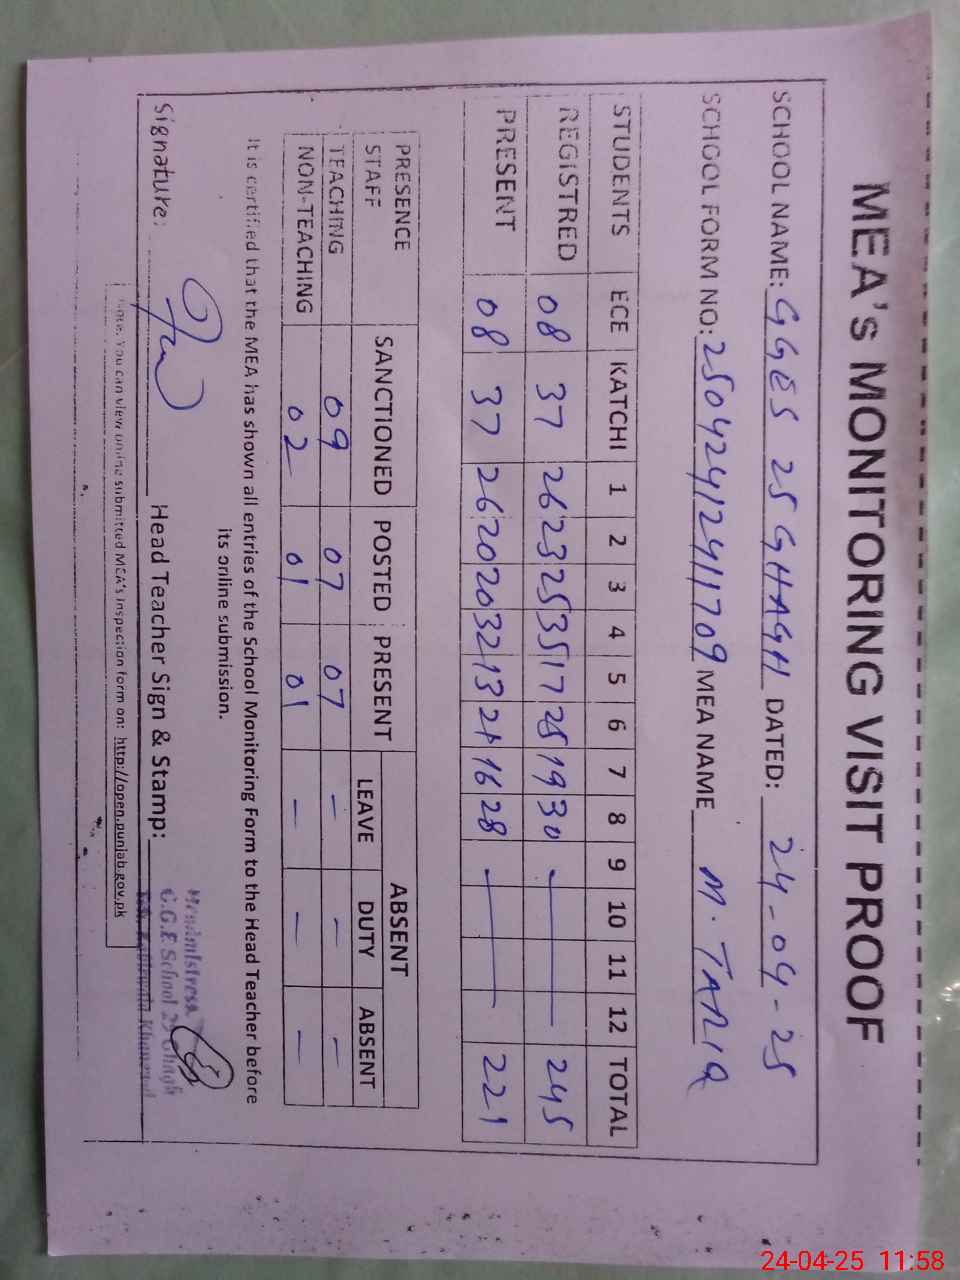 MEA's MONITORING VISIT PROOF
SCHOOL NAME: GGES 25 GHAGH DATED: 24-04-25
SCHOOL FORM NO: 25042412411709 MEA NAME M. TARIQ
STUDENTS ECE KATCHI 1 2 3 4 5 6 7 8 9 10 11 12 TOTAL
REGISTRED 08 37 26 23 25 35 17 25 19 30 — 245
PRESENT 08 37 26 20 20 32 13 21 16 28 — 221
PRESENCE STAFF SANCTIONED POSTED PRESENT ABSENT
LEAVE DUTY ABSENT
TEACHING 09 07 07 — — —
NON-TEACHING 02 01 01 — — —
It is certified that the MEA has shown all entries of the School Monitoring Form to the Head Teacher before
its online submission.
Signature: Head Teacher Sign & Stamp:
Headmistress
G.G.E School 25 Ghagh
Note: You can view online submitted MEA's Inspection form on: http://open.punjab.gov.pk
24-04-25 11:58